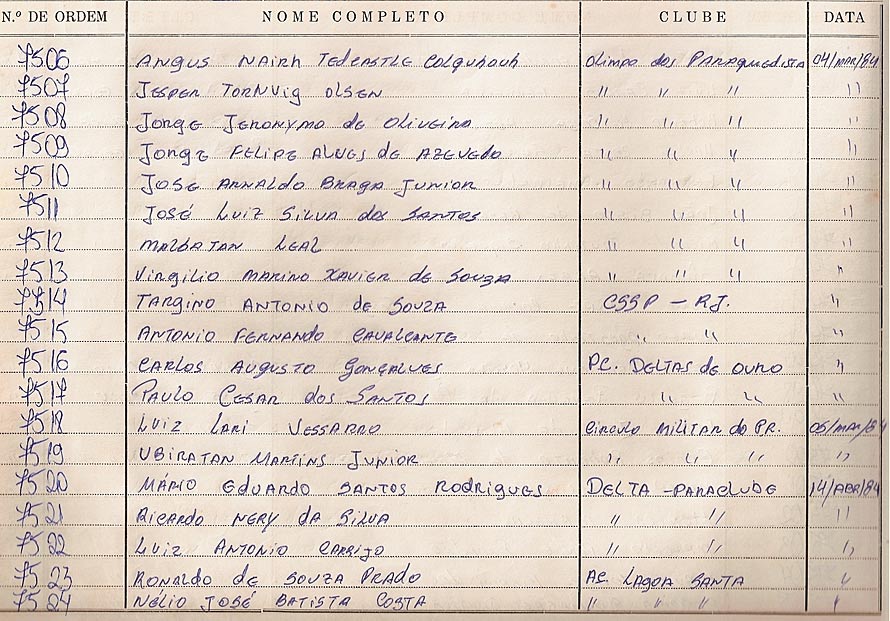 N.º DE ORDEM NOME COMPLETO CLUBE DATA
7506 Angus Nairn Tedcastle Colquhouh Olimpo dos Paraquedista 04/mar/84
7507 Jesper Tornvig Olsen " " " "
7508 Jorge Jeronymo de Oliveira " " " "
7509 Jorge Felipe Alves de Azevedo " " " "
7510 Jose Arnaldo Braga Junior " " " "
7511 José Luiz Silva dos Santos " " " "
7512 Malbatan Leal " " " "
7513 Virgilio Marino Xavier de Souza " " " "
7514 Targino Antonio de Souza CSSP - RJ. "
7515 Antonio Fernando Cavalcante " " "
7516 Carlos Augusto Gonçalves PC. Deltas de Ouro "
7517 Paulo Cesar dos Santos " " "
7518 Luiz Lari Vessarro Circulo Militar do PR. 05/mar/84
7519 Ubiratan Martins Junior " " " "
7520 Mário Eduardo Santos Rodrigues Delta - Paraclube 14/abr/84
7521 Ricardo Nery da Silva " " "
7522 Luiz Antonio Carrijo " " "
7523 Ronaldo de Souza Prado AC. Lagoa Santa "
7524 Nélio José Batista Costa " " " "